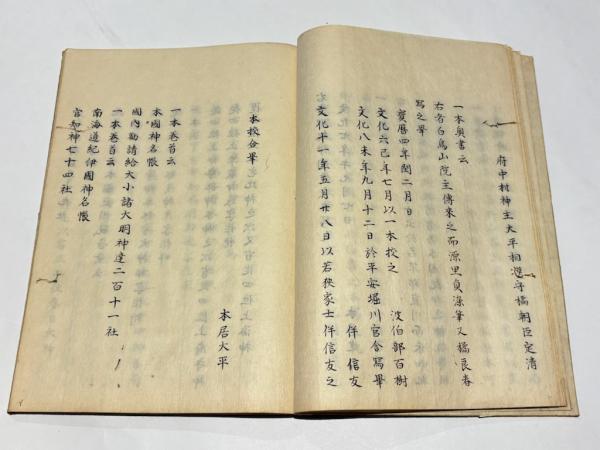 府中村神主大平相選守橘朝臣定清
一本奥書云
右者白鳥山院主傳來之而源里貞染筆又橘良春
写之畢
寶暦四年閏二月日
波伯部百樹
文化六己年七月以一本校之
伴信友
文化八未年九月十二日於平安堀川官舎寫畢
文化十一年五月廿八日以若狭家士伴信友之
本校合畢
本居大平
一本巻首云
本國神名帳
國内勧請給大小諸大明神達二百十一社
一本巻首云
南海道紀伊國神名帳
官知神七十四社